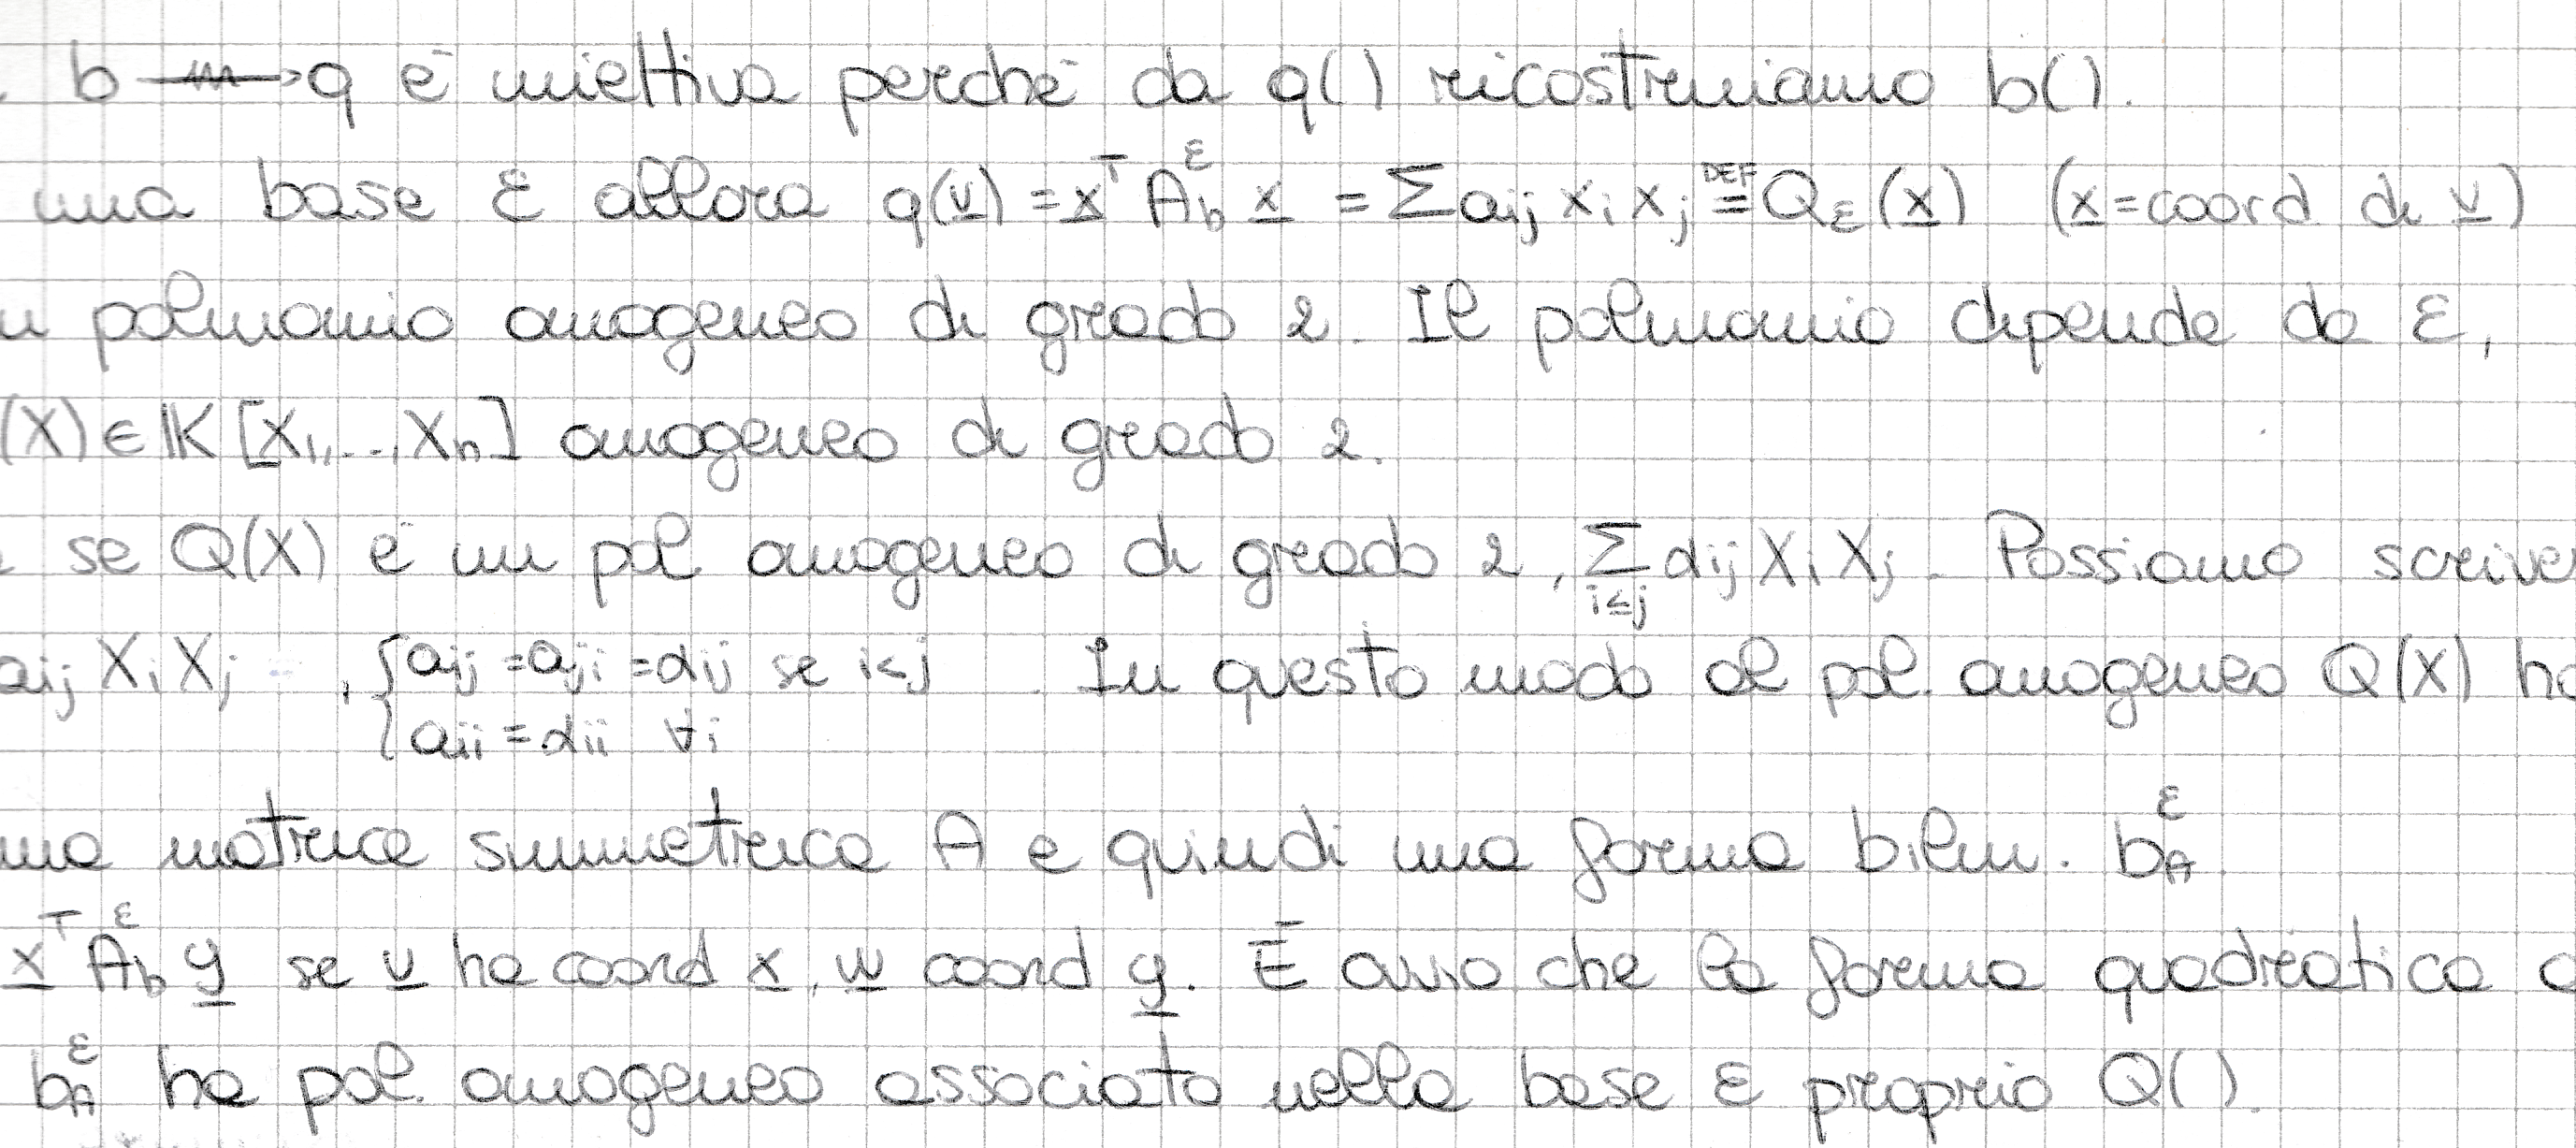 b ⟿ q è iniettiva perché da q() ricostruiamo b().
una base ε allora q(v) = xᵀ A_b^ε x = Σ aij xi xj ≝ Q_ε(x) (x = coord di v)
polinomio omogeneo di grado 2. Il polinomio dipende da ε,
(X) ∈ 𝕂[X1,...,Xn] omogeneo di grado 2.
se Q(X) è un pol omogeneo di grado 2, Σ_{i≤j} αij Xi Xj. Possiamo scriver
aij Xi Xj , { aij = aji = αij se i<j . In questo modo al pol. omogeneo Q(X) ho
{ aii = αii ∀i
una matrice simmetrica A e quindi una forma bilin. b_A^ε
xᵀ A_b^ε y se v ha coord x, w coord y. È ovvio che la forma quadratica a
b_A^ε ha pol. omogeneo associato nella base ε proprio Q().